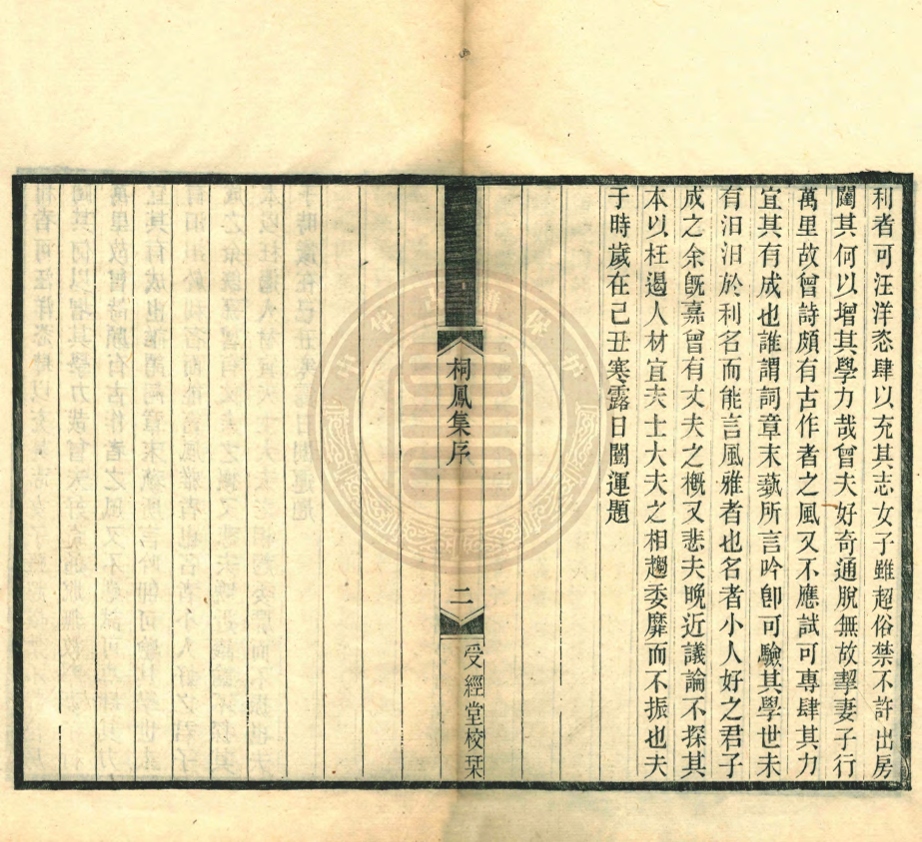 利者可汪洋恣肆以充其志女子雖超俗禁不許出房
闥其何以增其學力哉曾夫好奇通脫無故挈妻子行
萬里故曾詩頗有古作者之風又不應試可專肆其力
宜其有成也誰謂詞章末蓺所言吟卽可驗其學世未
有汨汨於利名而能言風雅者也名者小人好之君子
成之余旣嘉曾有丈夫之槪又悲夫晚近議論不探其
本以枉遏人材宜夫士大夫之相趨委靡而不振也夫
于時歲在己丑寒露日闓運題
桐鳳集序
二
受經堂校栞